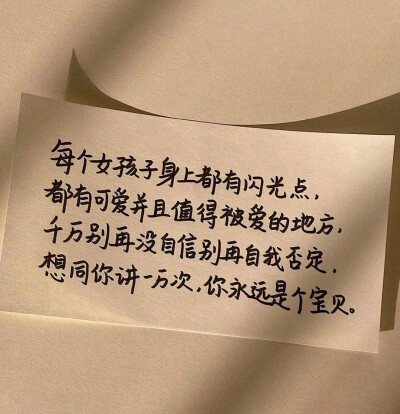 每个女孩子身上都有闪光点，
都有可爱并且值得被爱的地方，
千万别再没自信别再自我否定，
想同你讲一万次，你永远是个宝贝。